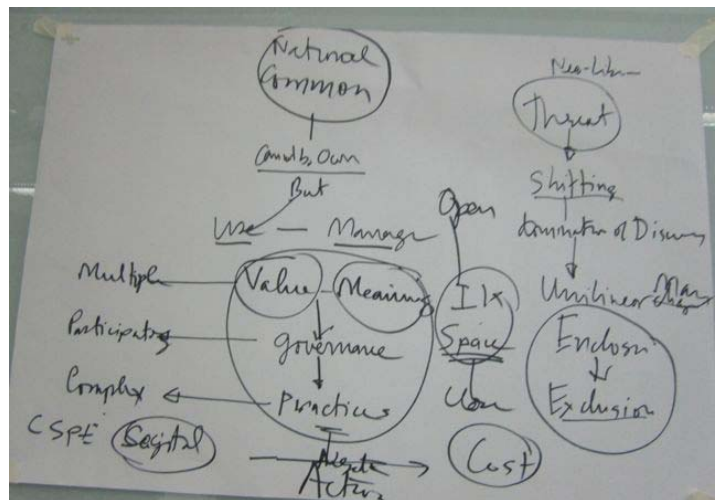 Natural
Common
Cannot be Own
But
Use — Manage
Multiple
Value
Meaning
Participatory
Governance
Complex
Practices
CSPE
Actors
Open
Space
Close
Cost
Neo-Lib
Threat
Shifting
Domination of
Unilinear
Enclosu
Exclusion